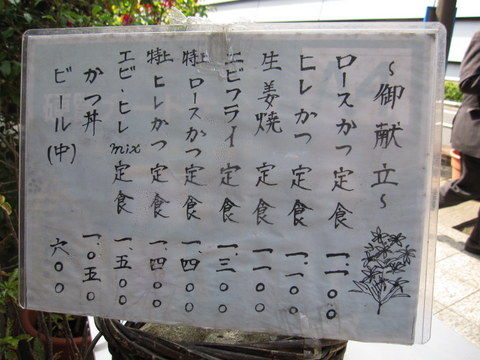 ～御献立～
ロースかつ定食 一、一〇〇
ヒレかつ定食 一、二〇〇
生姜焼定食 一、一〇〇
エビフライ定食 一、三〇〇
特上ロースかつ定食 一、四〇〇
特上ヒレかつ定食 一、四〇〇
エビ・ヒレmix定食 一、五〇〇
かつ丼 一、〇五〇
ビール(中) 六〇〇